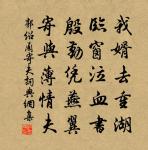 我婿去重湖
臨窗泣血書
殷勤凭燕翼
寄與薄情夫
郭紹蘭寄夫詞典網集